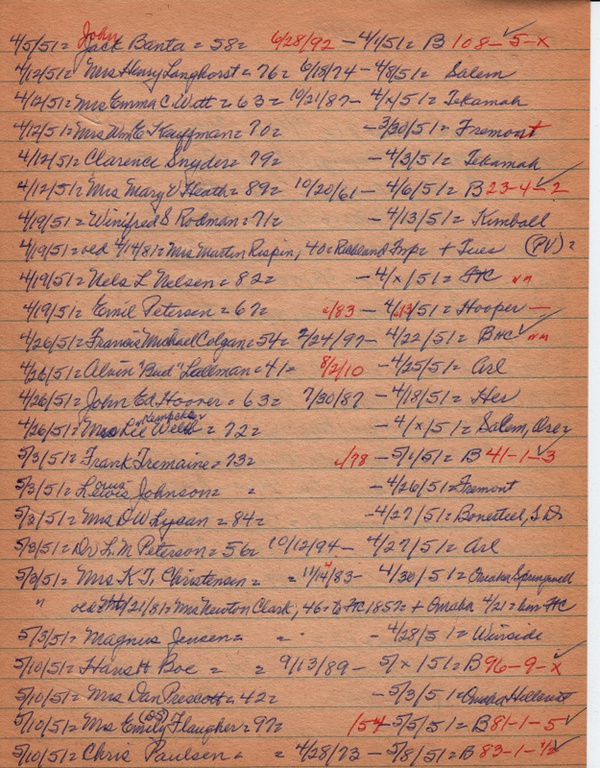 John
4/5/51= Jack Banta = 58= 6/28/92 - 4/1/51= B 108-5-x
4/12/51= Mrs Henry Langhorst = 76= 6/18/74 - 4/8/51= Salem
4/12/51= Mrs Emma C Witt = 63= 10/21/87- 4/x/51= Tekamah
4/12/51= Mrs Wm E Kauffman= 70= - 3/30/51= Fremont
4/12/51= Clarence Snyder= 79= - 4/3/51= Tekamah
4/12/51= Mrs Mary V Heath= 89= 10/20/61- 4/6/51= B 23-4-2
4/19/51= Winifred S Rodman= 71= - 4/13/51= Kimball
4/19/51= 4/14/81= Mrs Martin Rispin, 40= Richland + Tues (PV)=
4/19/51= Nels L Nelsen= 82= - 4/x/51= HC
4/19/51= Emil Petersen= 67= /83 - 4/13/51= Hooper -
4/26/51= Francis Michael Colgan= 54= 2/24/97- 4/22/51= BHC
4/26/51= Alvin "Bud" Lallman= 41= 8/2/10 - 4/25/51= Arl
4/26/51= John Ed Hoover= 63= 7/30/87 - 4/18/51= Her
4/26/51= Mrs Lee Webb = 72= - 4/x/51= Salem, Ore=
5/3/51= Frank Tremaine= 73= /78 - 5/1/51= B 41-1-3
5/3/51= Johnson= = - 4/26/51= Fremont
5/3/51= Mrs D W Lysan= 84= - 4/27/51= Bonesteel, S.D=
5/3/51= Dr L M Peterson= 56= 10/12/94- 4/27/51= Arl
5/3/51= Mrs K T Christensen= = 11/14/83- 4/30/51= Omaha Springwell
" 4/21/81= Mrs Newton Clark, 46= to HC 1857= + Omaha 4/21= HC
5/3/51= Magnus Jensen= = - 4/28/51= Winside
5/10/51= Hans H Boe = = 9/13/89 - 5/x/51= B 96-9-x
5/10/51= Mrs Dan Prescott= 42= - 5/3/51= Omaha Hillcrest
5/10/51= Mrs Emily Flaugher= 97= /54 - 5/5/51= B 81-1-5
5/10/51= Chris Paulsen= = 4/28/73 - 5/8/51= B 83-1-1/2